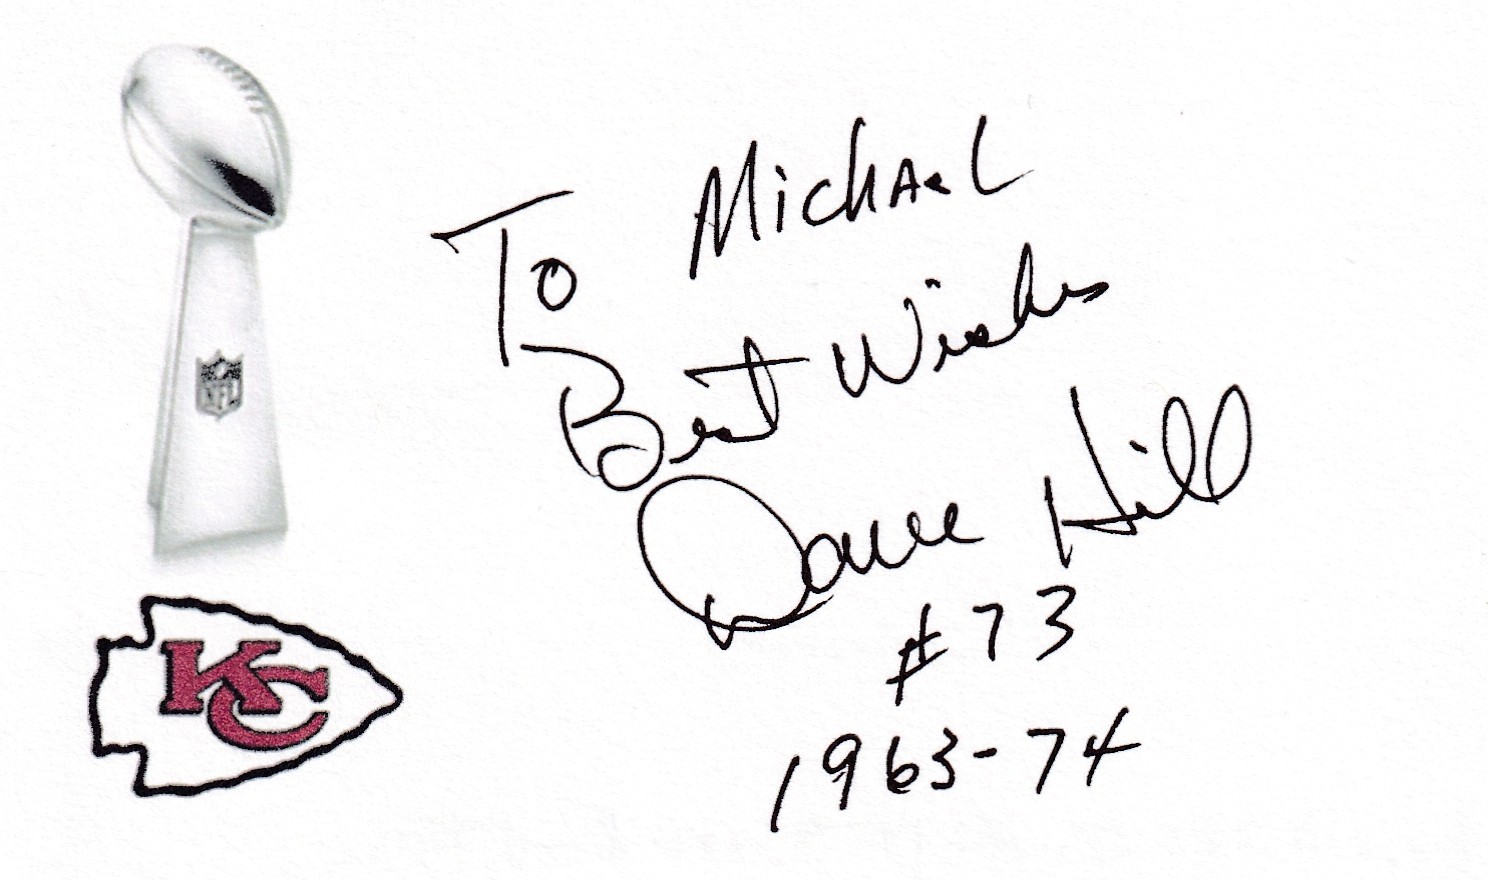 NFL
KC
To Michael
Best Wishes
Dave Hill
#73
1963-74